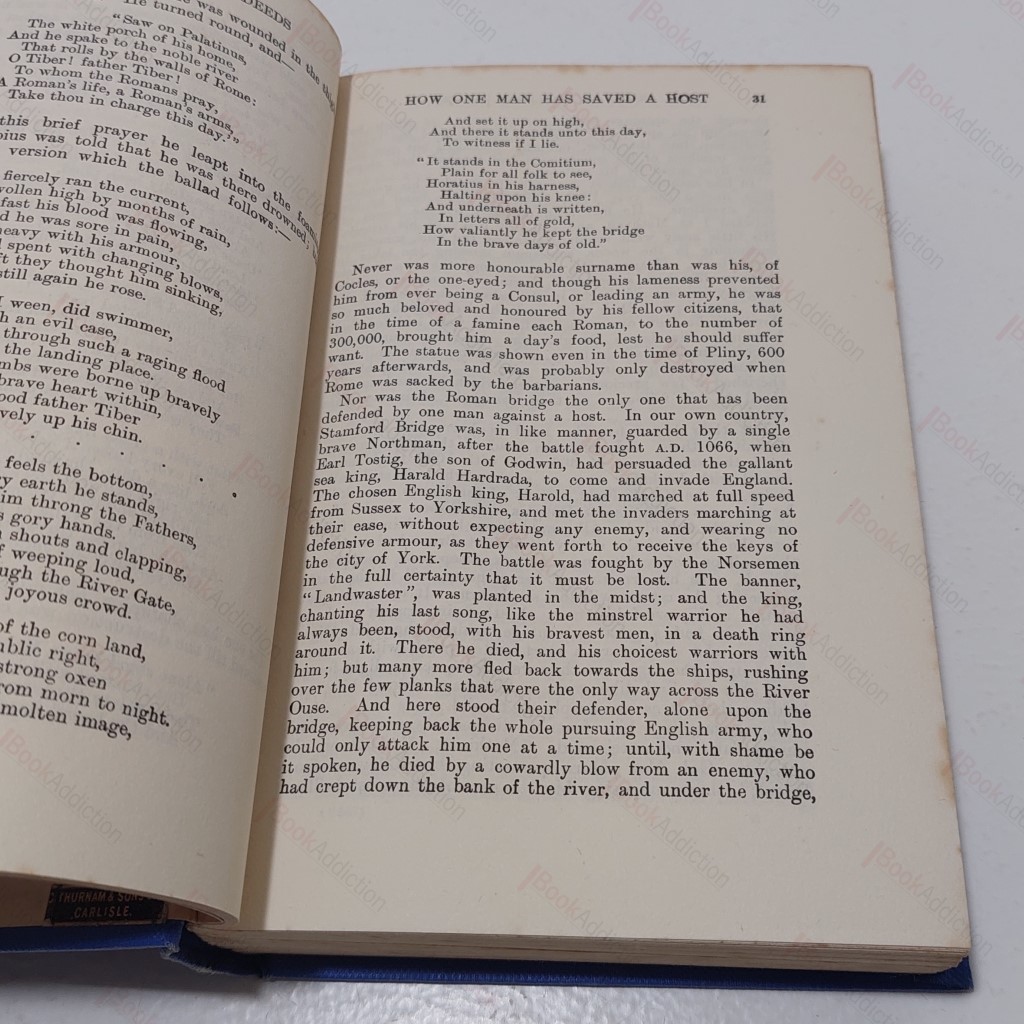 DEEDS
he was wounded in the
He turned round, and—
"Saw on Palatinus,
The white porch of his home,
And he spake to the noble river
That rolls by the walls of Rome:
O Tiber! father Tiber!
To whom the Romans pray,
A Roman's life, a Roman's arms,
Take thou in charge this day.'"
this brief prayer he leapt into the
was told that he was there drowned;
version which the ballad follows:—
fiercely ran the current,
high by months of rain,
fast his blood was flowing,
he was sore in pain,
heavy with his armour,
spent with changing blows,
they thought him sinking,
still again he rose.
I ween, did swimmer,
an evil case,
through such a raging flood
the landing place.
were borne up bravely
brave heart within,
father Tiber
up his chin.
feels the bottom,
earth he stands,
throng the Fathers,
gory hands.
shouts and clapping,
weeping loud,
the River Gate,
joyous crowd.
of the corn land,
right,
strong oxen
from morn to night.
molten image,
THURNAM & SONS
CARLISLE.
HOW ONE MAN HAS SAVED A HOST 31
And set it up on high,
And there it stands unto this day,
To witness if I lie.
"It stands in the Comitium,
Plain for all folk to see,
Horatius in his harness,
Halting upon his knee:
And underneath is written,
In letters all of gold,
How valiantly he kept the bridge
In the brave days of old."
Never was more honourable surname than was his, of
Cocles, or the one-eyed; and though his lameness prevented
him from ever being a Consul, or leading an army, he was
so much beloved and honoured by his fellow citizens, that
in the time of a famine each Roman, to the number of
300,000, brought him a day's food, lest he should suffer
want. The statue was shown even in the time of Pliny, 600
years afterwards, and was probably only destroyed when
Rome was sacked by the barbarians.
Nor was the Roman bridge the only one that has been
defended by one man against a host. In our own country,
Stamford Bridge was, in like manner, guarded by a single
brave Northman, after the battle fought A.D. 1066, when
Earl Tostig, the son of Godwin, had persuaded the gallant
sea king, Harald Hardrada, to come and invade England.
The chosen English king, Harold, had marched at full speed
from Sussex to Yorkshire, and met the invaders marching at
their ease, without expecting any enemy, and wearing no
defensive armour, as they went forth to receive the keys of
the city of York. The battle was fought by the Norsemen
in the full certainty that it must be lost. The banner,
"Landwaster", was planted in the midst; and the king,
chanting his last song, like the minstrel warrior he had
always been, stood, with his bravest men, in a death ring
around it. There he died, and his choicest warriors with
him; but many more fled back towards the ships, rushing
over the few planks that were the only way across the River
Ouse. And here stood their defender, alone upon the
bridge, keeping back the whole pursuing English army, who
could only attack him one at a time; until, with shame be
it spoken, he died by a cowardly blow from an enemy, who
had crept down the bank of the river, and under the bridge,